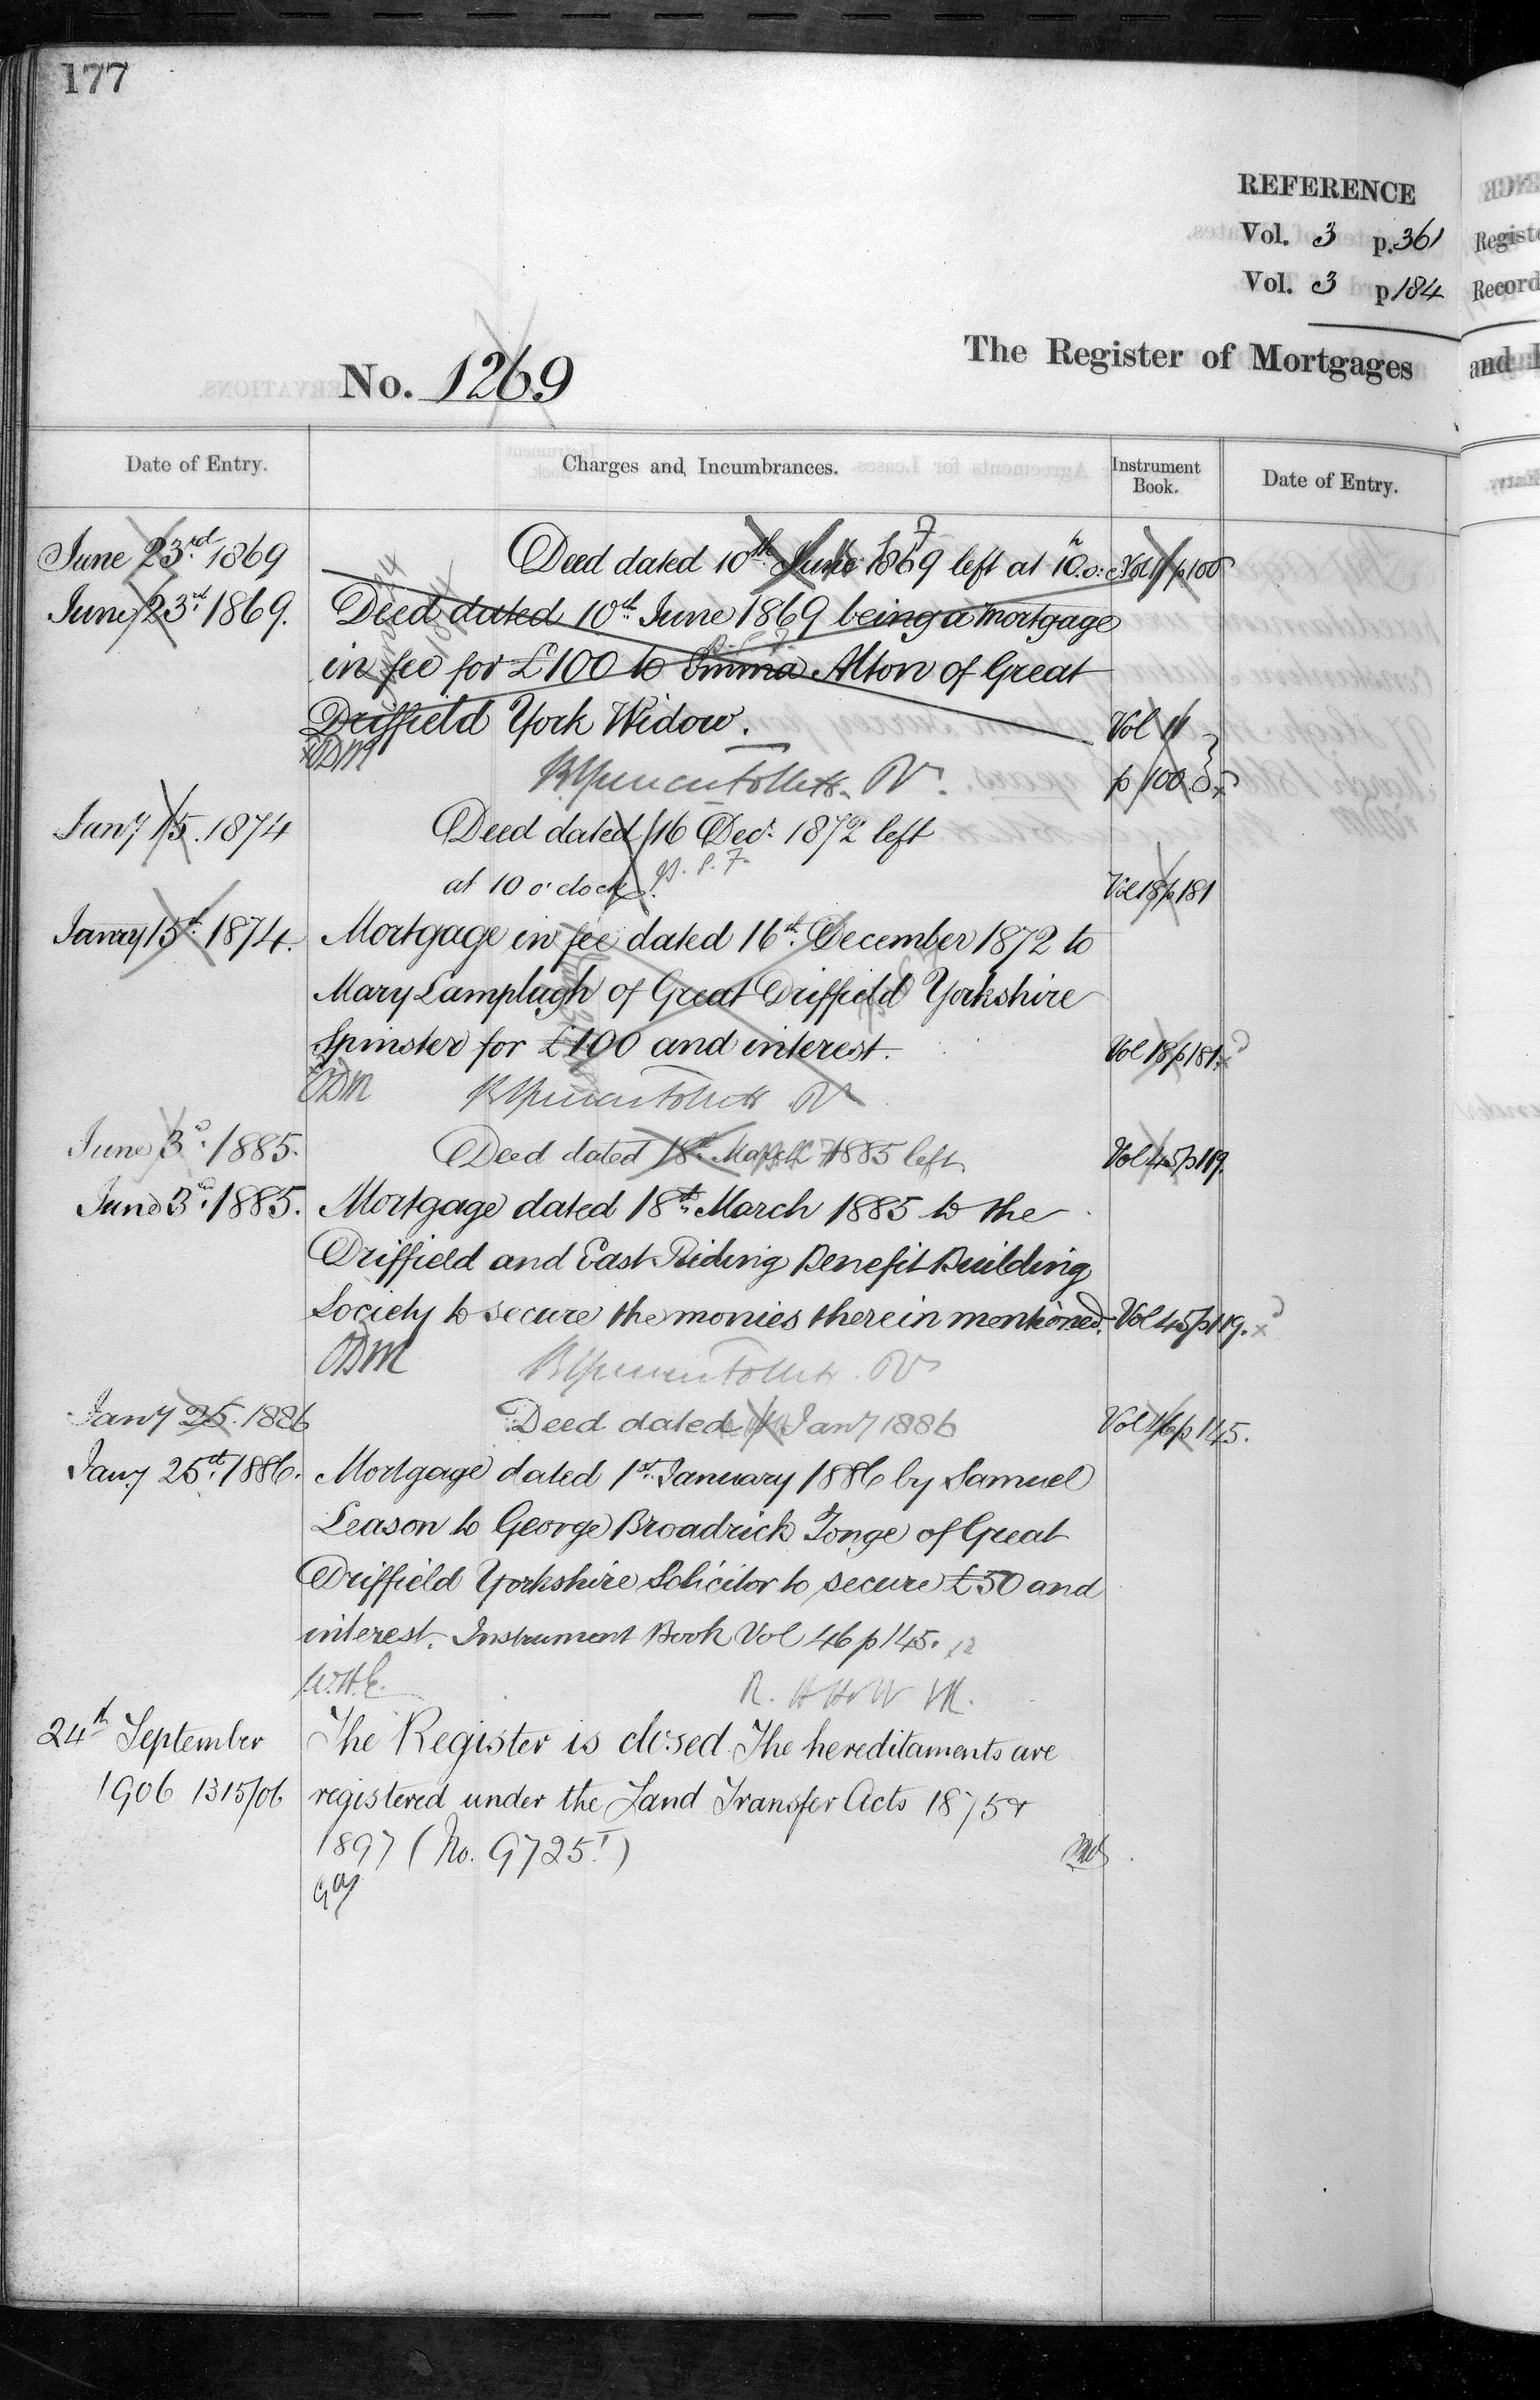 177
REFERENCE
Vol. 3 p. 361
Vol. 3 p 184
The Register of Mortgages
No. 1269
Date of Entry. Charges and Incumbrances. Instrument Book. Date of Entry.
June 23rd 1869 Deed dated 10th June 1869 left at 10.o.c Vol 11 p 100
June 23rd 1869. Deed dated 10th June 1869 being a mortgage
in fee for £100 to Emma Alton of Great
Driffield York Widow. Vol 11
ODM p 100
Jany 15. 1874 Deed dated 16 Decr 1872 left
at 10 o'clock. Vol 18 p 181
Janry 15th 1874. Mortgage in fee dated 16th December 1872 to
Mary Lamplugh of Great Driffield Yorkshire
Spinster for £100 and interest. Vol 18 p 181.
ODM
June 3d. 1885. Deed dated 18th March 1885 left Vol 45 p 119.
June 3d. 1885. Mortgage dated 18th March 1885 to the
Driffield and East Riding Benefit Building
Society to secure the monies therein mentioned. Vol 45 p 119. x
ODM
Jany 25. 1886 Deed dated Jany 1886 Vol 46 p 145.
Jany 25th 1886. Mortgage dated 1st January 1886 by Samuel
Leason to George Broadrick Tonge of Great
Driffield Yorkshire Solicitor to secure £50 and
interest. Instrument Book Vol 46 p 145.
W.H.E.
24th September The Register is closed. The hereditaments are
1906 1315/06 registered under the Land Transfer Acts 1875 &
1897 (No. 9725.)
REFERENCE
Registe
Record
and